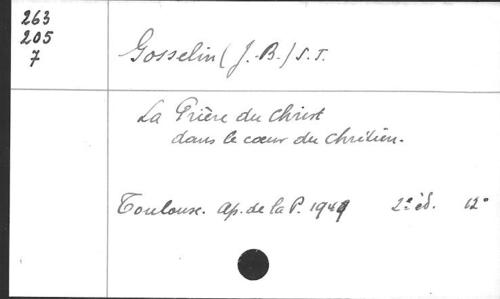 263
205
7
Gosselin (J.-B.) S.T.
La Prière du Christ
dans le cœur du chrétien.
Toulouse. Ap. de la P. 1949 2e éd. 12°